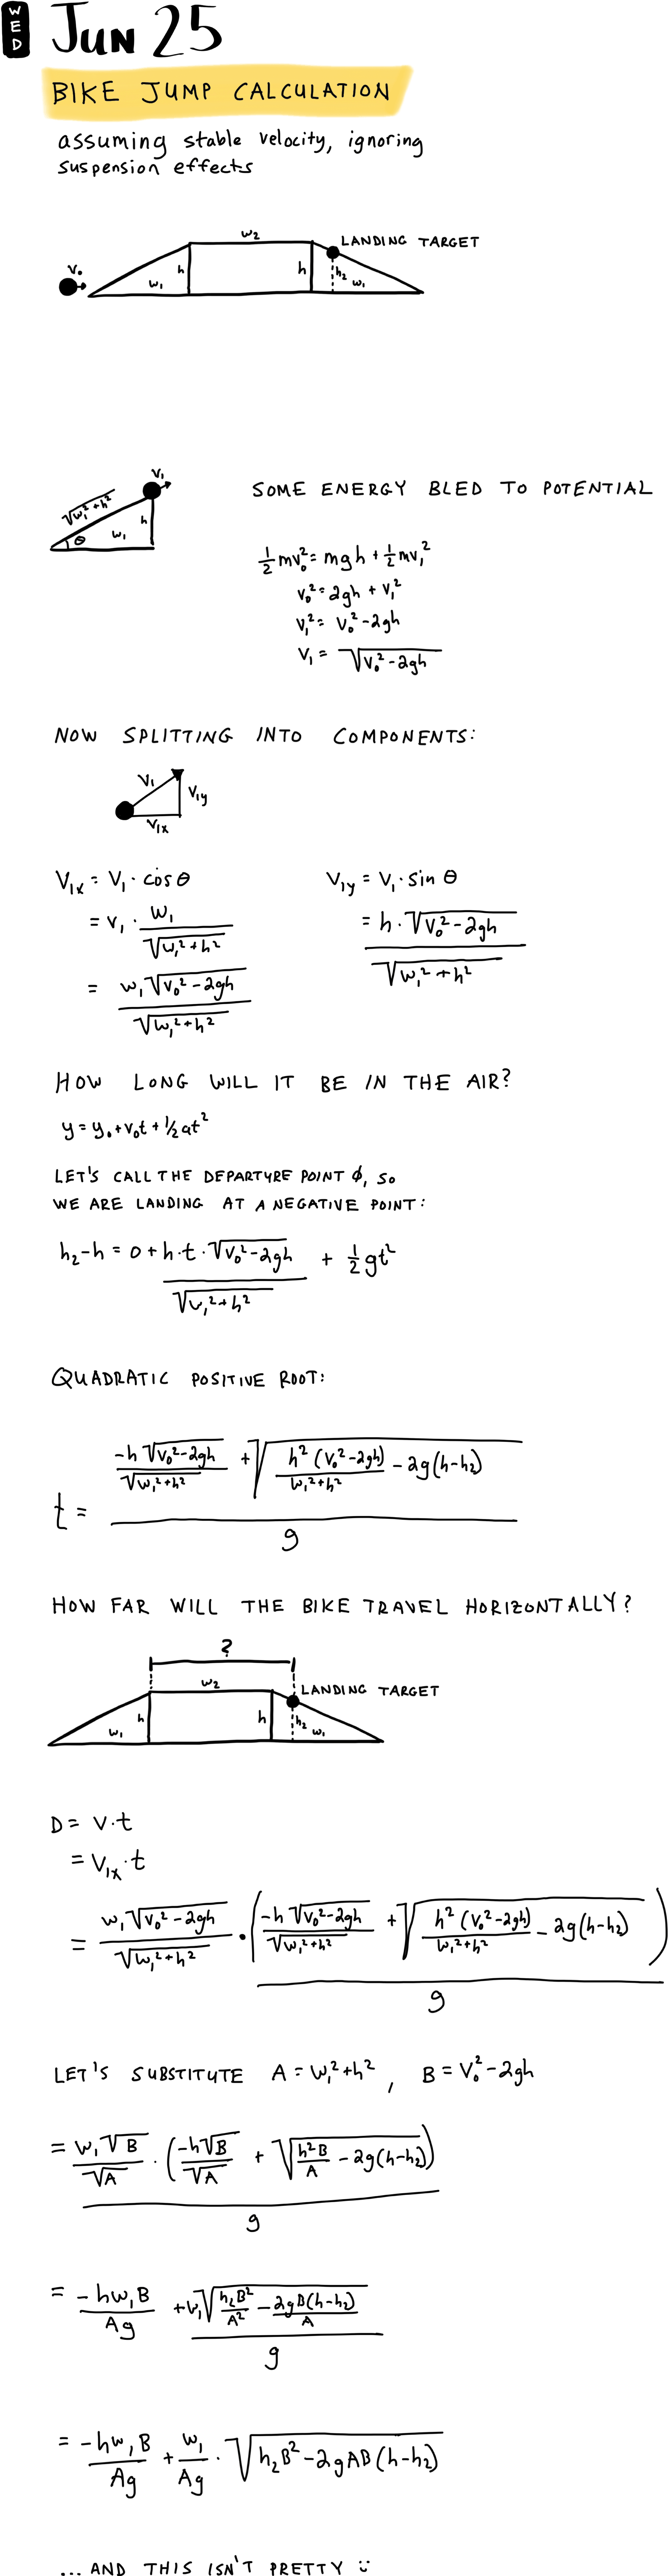 WED
JUN 25
BIKE JUMP CALCULATION
assuming stable velocity, ignoring
suspension effects
w₂
LANDING TARGET
V₀
w₁
h
h
h₂
w₁
V₁
√(w₁²+h²)
θ
w₁
h
SOME ENERGY BLED TO POTENTIAL
½mv₀² = mgh + ½mv₁²
v₀² = 2gh + v₁²
v₁² = v₀² - 2gh
V₁ = √(v₀² - 2gh)
NOW SPLITTING INTO COMPONENTS:
V₁
V₁y
V₁x
V₁x = V₁ · cos θ
= v₁ · w₁/√(w₁²+h²)
= w₁√(v₀² - 2gh)/√(w₁²+h²)
V₁y = V₁ · sin θ
= h · √(v₀² - 2gh)/√(w₁²+h²)
HOW LONG WILL IT BE IN THE AIR?
y = y₀ + v₀t + ½at²
LET'S CALL THE DEPARTURE POINT ∅, SO
WE ARE LANDING AT A NEGATIVE POINT:
h₂-h = 0 + h·t·√(v₀²-2gh)/√(w₁²+h²) + ½gt²
QUADRATIC POSITIVE ROOT:
t = (-h√(v₀²-2gh)/√(w₁²+h²) + √(h²(v₀²-2gh)/(w₁²+h²) - 2g(h-h₂)))/g
HOW FAR WILL THE BIKE TRAVEL HORIZONTALLY?
?
w₂
LANDING TARGET
w₁
h
h
h₂
w₁
D = V·t
= V₁x·t
= w₁√(v₀²-2gh)/√(w₁²+h²) · (-h√(v₀²-2gh)/√(w₁²+h²) + √(h²(v₀²-2gh)/(w₁²+h²) - 2g(h-h₂)))/g
LET'S SUBSTITUTE A = w₁²+h², B = V₀²-2gh
= w₁√B/√A · (-h√B/√A + √(h²B/A - 2g(h-h₂)))/g
= -hw₁B/Ag + w₁√(h₂B²/A² - 2gB(h-h₂)/A)/g
= -hw₁B/Ag + w₁/Ag · √(h₂B² - 2gAB(h-h₂))
... AND THIS ISN'T PRETTY :)